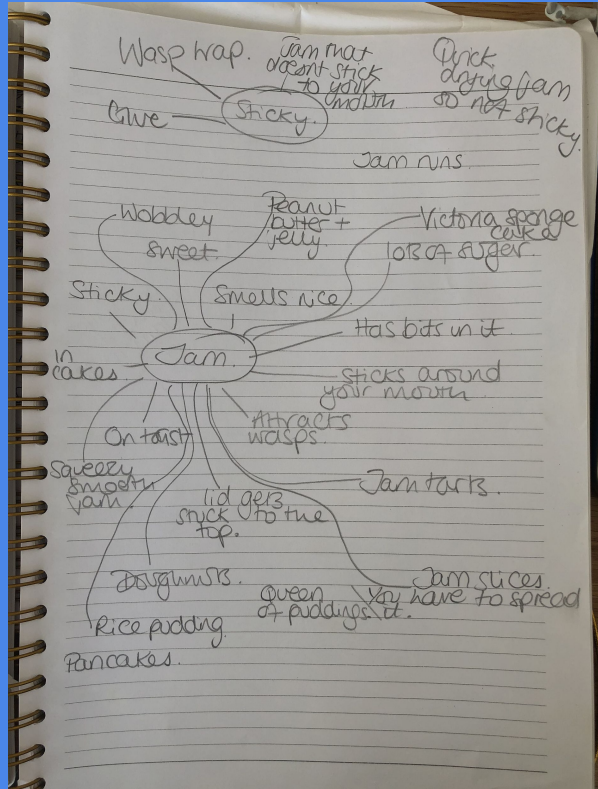 Wasp trap.
Jam that
doesnt stick
to your
mouth
Quick
drying jam
so not sticky.
Glue
Sticky.
Jam runs
Wobbley
Peanut
butter +
jelly.
Victoria sponge
cake
Sweet
lots of suger.
Sticky
Smells nice
Has bits in it
Jam.
In
cakes
Sticks around
your mouth
On toast
Attracts
wasps.
Squeezy
smooth
jam
lid gets
stuck to the
top.
Jam tarts.
Doughnuts.
Jam slices.
Queen
of puddings
You have to spread
it.
Rice pudding
Pancakes.